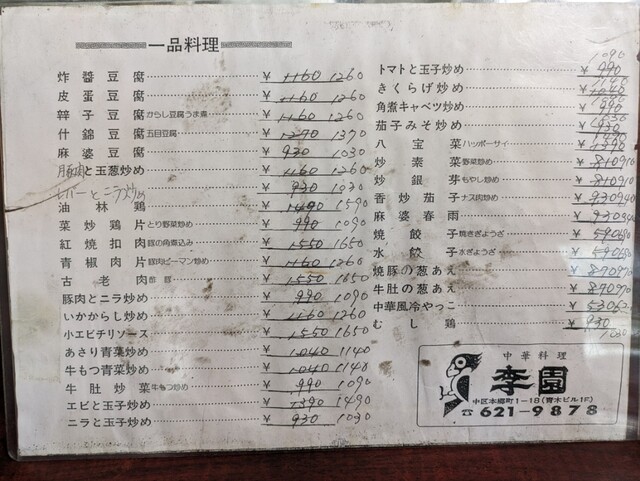 一品料理
炸醬豆腐 ¥ 1160 1260
皮蛋豆腐 ¥ 1160 1260
辛子豆腐 からし豆腐うま煮 ¥ 1160 1260
什錦豆腐 五目豆腐 ¥ 1270 1370
麻婆豆腐 ¥ 930 1030
豚肉と玉葱炒め ¥ 1160 1260
レバーとニラ炒め ¥ 930 1030
油林鶏 ¥ 1490 1590
菜炒鶏片 とり野菜炒め ¥ 990 1090
紅焼扣肉 豚の角煮込み ¥ 1550 1650
青椒肉片 豚肉ピーマン炒め ¥ 1160 1260
古老肉 酢豚 ¥ 1550 1650
豚肉とニラ炒め ¥ 990 1090
いかからし炒め ¥ 1160 1260
小エビチリソース ¥ 1550 1650
あさり青菜炒め ¥ 1040 1140
牛もつ青菜炒め ¥ 1040 1140
牛肚炒菜 牛もつ炒め ¥ 990 1090
エビと玉子炒め ¥ 1390 1490
ニラと玉子炒め ¥ 930 1030
トマトと玉子炒め ¥ 990 1090
きくらげ炒め ¥ 1040 1140
角煮キャベツ炒め ¥ 990 1090
茄子みそ炒め ¥ 930 1030
八宝菜 ハッポーサイ ¥ 1390
炒素菜 野菜炒め ¥ 810 910
炒銀芽 もやし炒め ¥ 810 910
香炒茄子 ナス肉炒め ¥ 930 940
麻婆春雨 ¥ 930
焼餃子 焼きぎょうざ ¥ 590 690
水餃子 水ぎょうざ ¥ 590 690
焼豚の葱あえ ¥ 870 970
牛肚の葱あえ ¥ 870 970
中華風冷やっこ ¥ 530 62
むし鶏 ¥ 930 1030
中華料理
李園
中区本郷町1-18(青木ビル1F)
☎621-9878